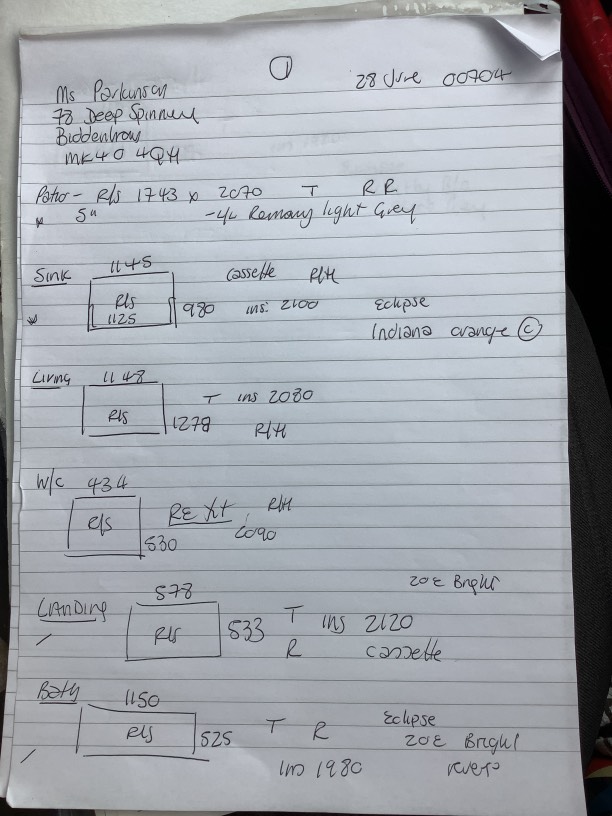 ①
28 June 00704
Ms Parkinson
78 Deep Spinney
Biddenham
MK40 4QH
Patio - R/s 1743 x 2070 T RR
* 5" light Grey
Sink 1145 Cassette R/H
R/s 980 ins: 2100 Eclipse
* 1125 Indiana orange Ⓒ
Living 1148
T ins 2080
R/s 1278 R/H
W/C 434
R/s R/H
530 2090
20E Bright
Landing 578
R/s 533 T ins 2120
R Cassette
Bath 1150
R/s 525 T R Eclipse
20E Bright
ins 1980